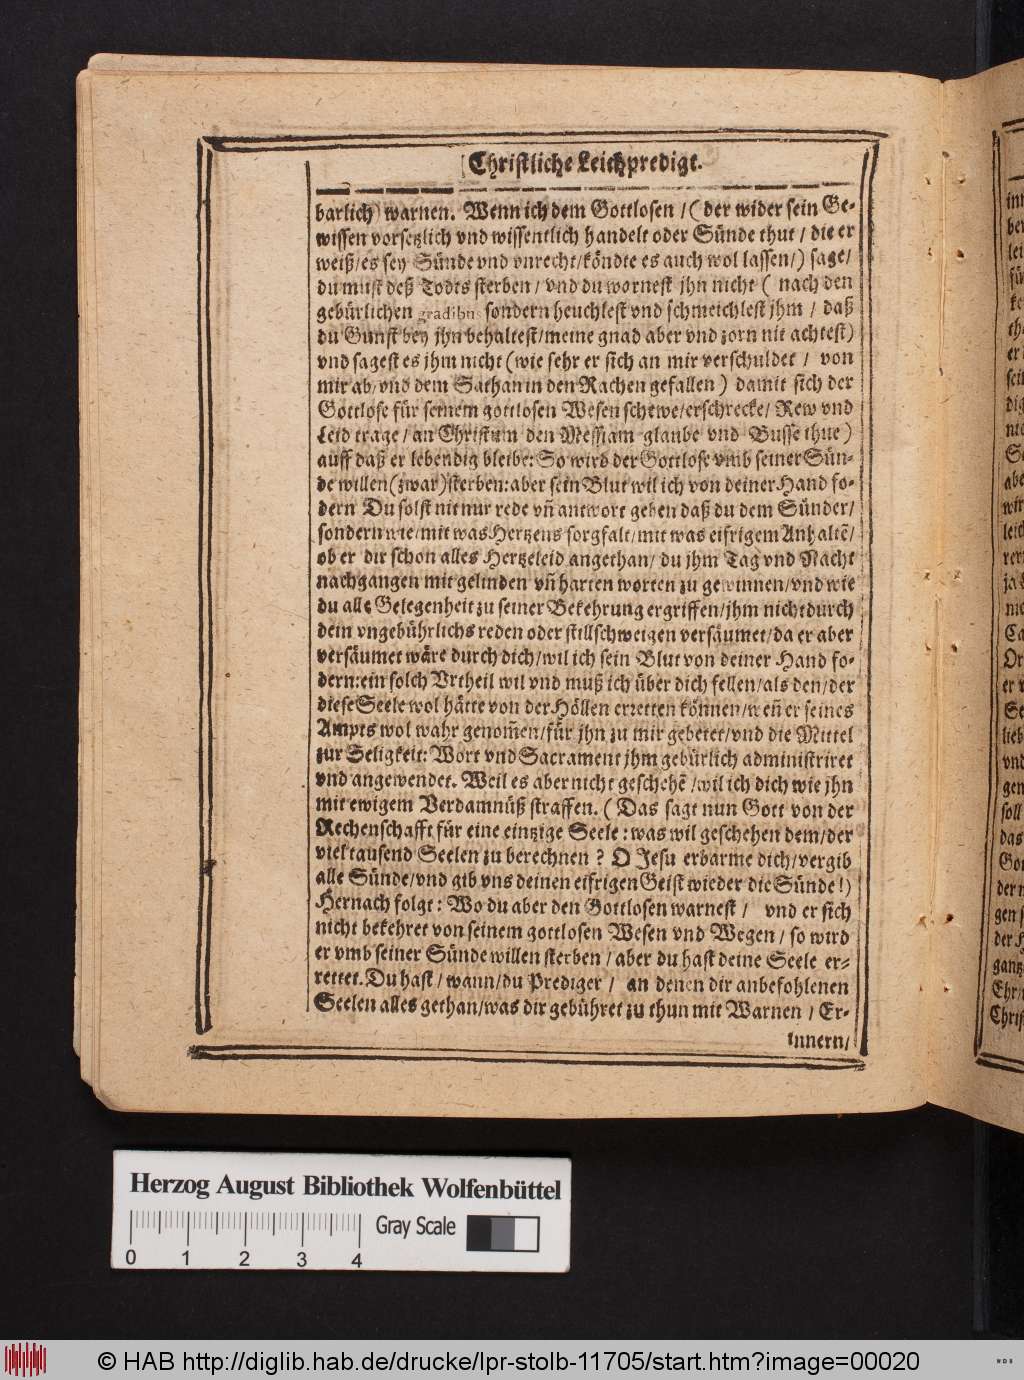 Christliche Leichpredigt.
barlich) warnen. Wenn ich dem Gottlosen / (der wider sein Ge-
wissen vorsetzlich vnd wissentlich handelt oder Sünde thut / die er
weiß/es sey Sünde vnd vnrecht/köndte es auch wol lassen/) sage/
du must deß Todts sterben / vnd du wornest jhn nicht ( nach den
gebürlichen gradibus sondern heuchlest vnd schmeichlest jhm / daß
du Gunst bey jhn behaltest/meine gnad aber vnd zorn nit achtest)
vnd sagest es jhm nicht (wie sehr er sich an mir verschuldet / von
mir ab/vnd dem Sathan in den Rachen gefallen ) damit sich der
Gottlose für seinem gottlosen Wesen schewe/erschrecke/ Rew vnd
Leid trage / an Christum den Messiam glaube vnd Busse thue )
auff daß er lebendig bleibe: So wird der Gottlose vmb seiner Sün-
de willen (zwar) sterben: aber sein Blut wil ich von deiner Hand fo-
dern Du solst nit nur rede vñ antwort geben daß du dem Sünder/
sondern wie/mit was Hertzens sorgfalt/mit was eifrigem Anhaltẽ/
ob er dir schon alles Hertzeleid angethan/ du jhm Tag vnd Nacht
nachgangen mit gelinden vñ harten worten zu gewinnen/vnd wie
du alle Gelegenheit zu seiner Bekehrung ergriffen/jhm nicht durch
dein vngebührlichs reden oder stillschweigen versäumet/da er aber
versäumet wäre durch dich/wil ich sein Blut von deiner Hand fo-
dern: ein solch Vrtheil wil vnd muß ich über dich fellen/als den/der
diese Seele wol hätte von der Höllen erretten können/weñ er seines
Ampts wol wahr genom̃en/für jhn zu mir gebetet/vnd die Mittel
zur Seligkeit: Wort vnd Sacrament jhm gebürlich administriret
vnd angewendet. Weil es aber nicht geschehẽ /wil ich dich wie jhn
mit ewigem Verdamnüß straffen. ( Das sagt nun Gott von der
Rechenschafft für eine eintzige Seele : was wil geschehen dem/der
viel tausend Seelen zu berechnen ? O Jesu erbarme dich/vergib
alle Sünde/vnd gib vns deinen eifrigen Geist wieder die Sünde !)
Hernach folgt : Wo du aber den Gottlosen warnest / vnd er sich
nicht bekehret von seinem gottlosen Wesen vnd Wegen / so wird
er vmb seiner Sünde willen sterben / aber du hast deine Seele er-
rettet. Du hast / wann/du Prediger / an denen dir anbefohlenen
Seelen alles gethan/was dir gebühret zu thun mit Warnen / Er-
innern/
Herzog August Bibliothek Wolfenbüttel
Gray Scale
0 1 2 3 4
© HAB http://diglib.hab.de/drucke/lpr-stolb-11705/start.htm?image=00020